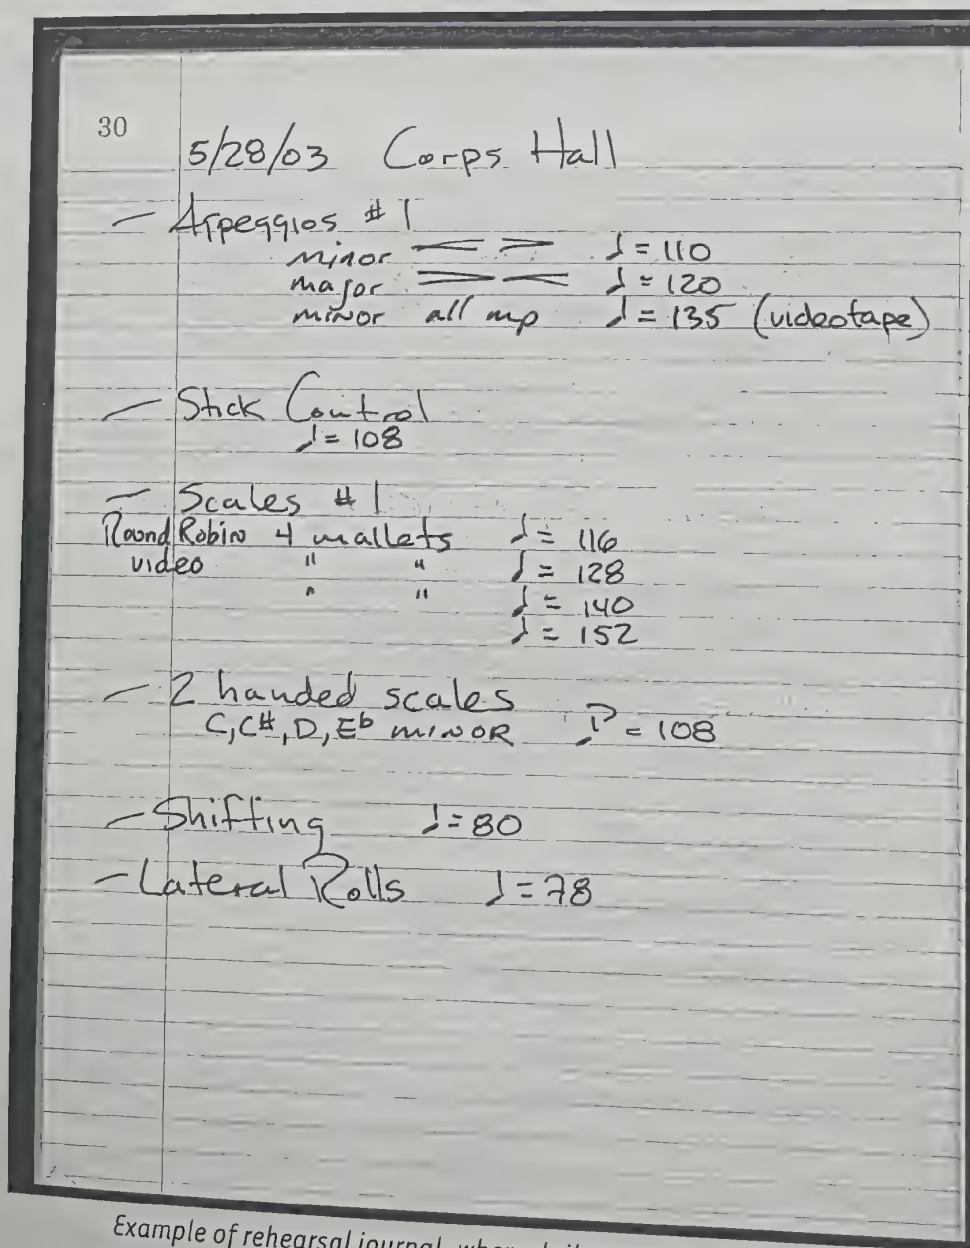 30
5/28/03 Corps Hall
— Arpeggios #1
minor < > ♩ = 110
major > < ♩ = 120
minor all mp ♩ = 135 (videotape)
— Stick Control
♩ = 108
— Scales #1
Round Robin 4 mallets ♩ = 116
video " " ♩ = 128
" " ♩ = 140
♩ = 152
— 2 handed scales
C, C#, D, Eb minor ♩. = 108
— Shifting ♩ = 80
— Lateral Rolls ♩ = 78
Example of rehearsal journal, where